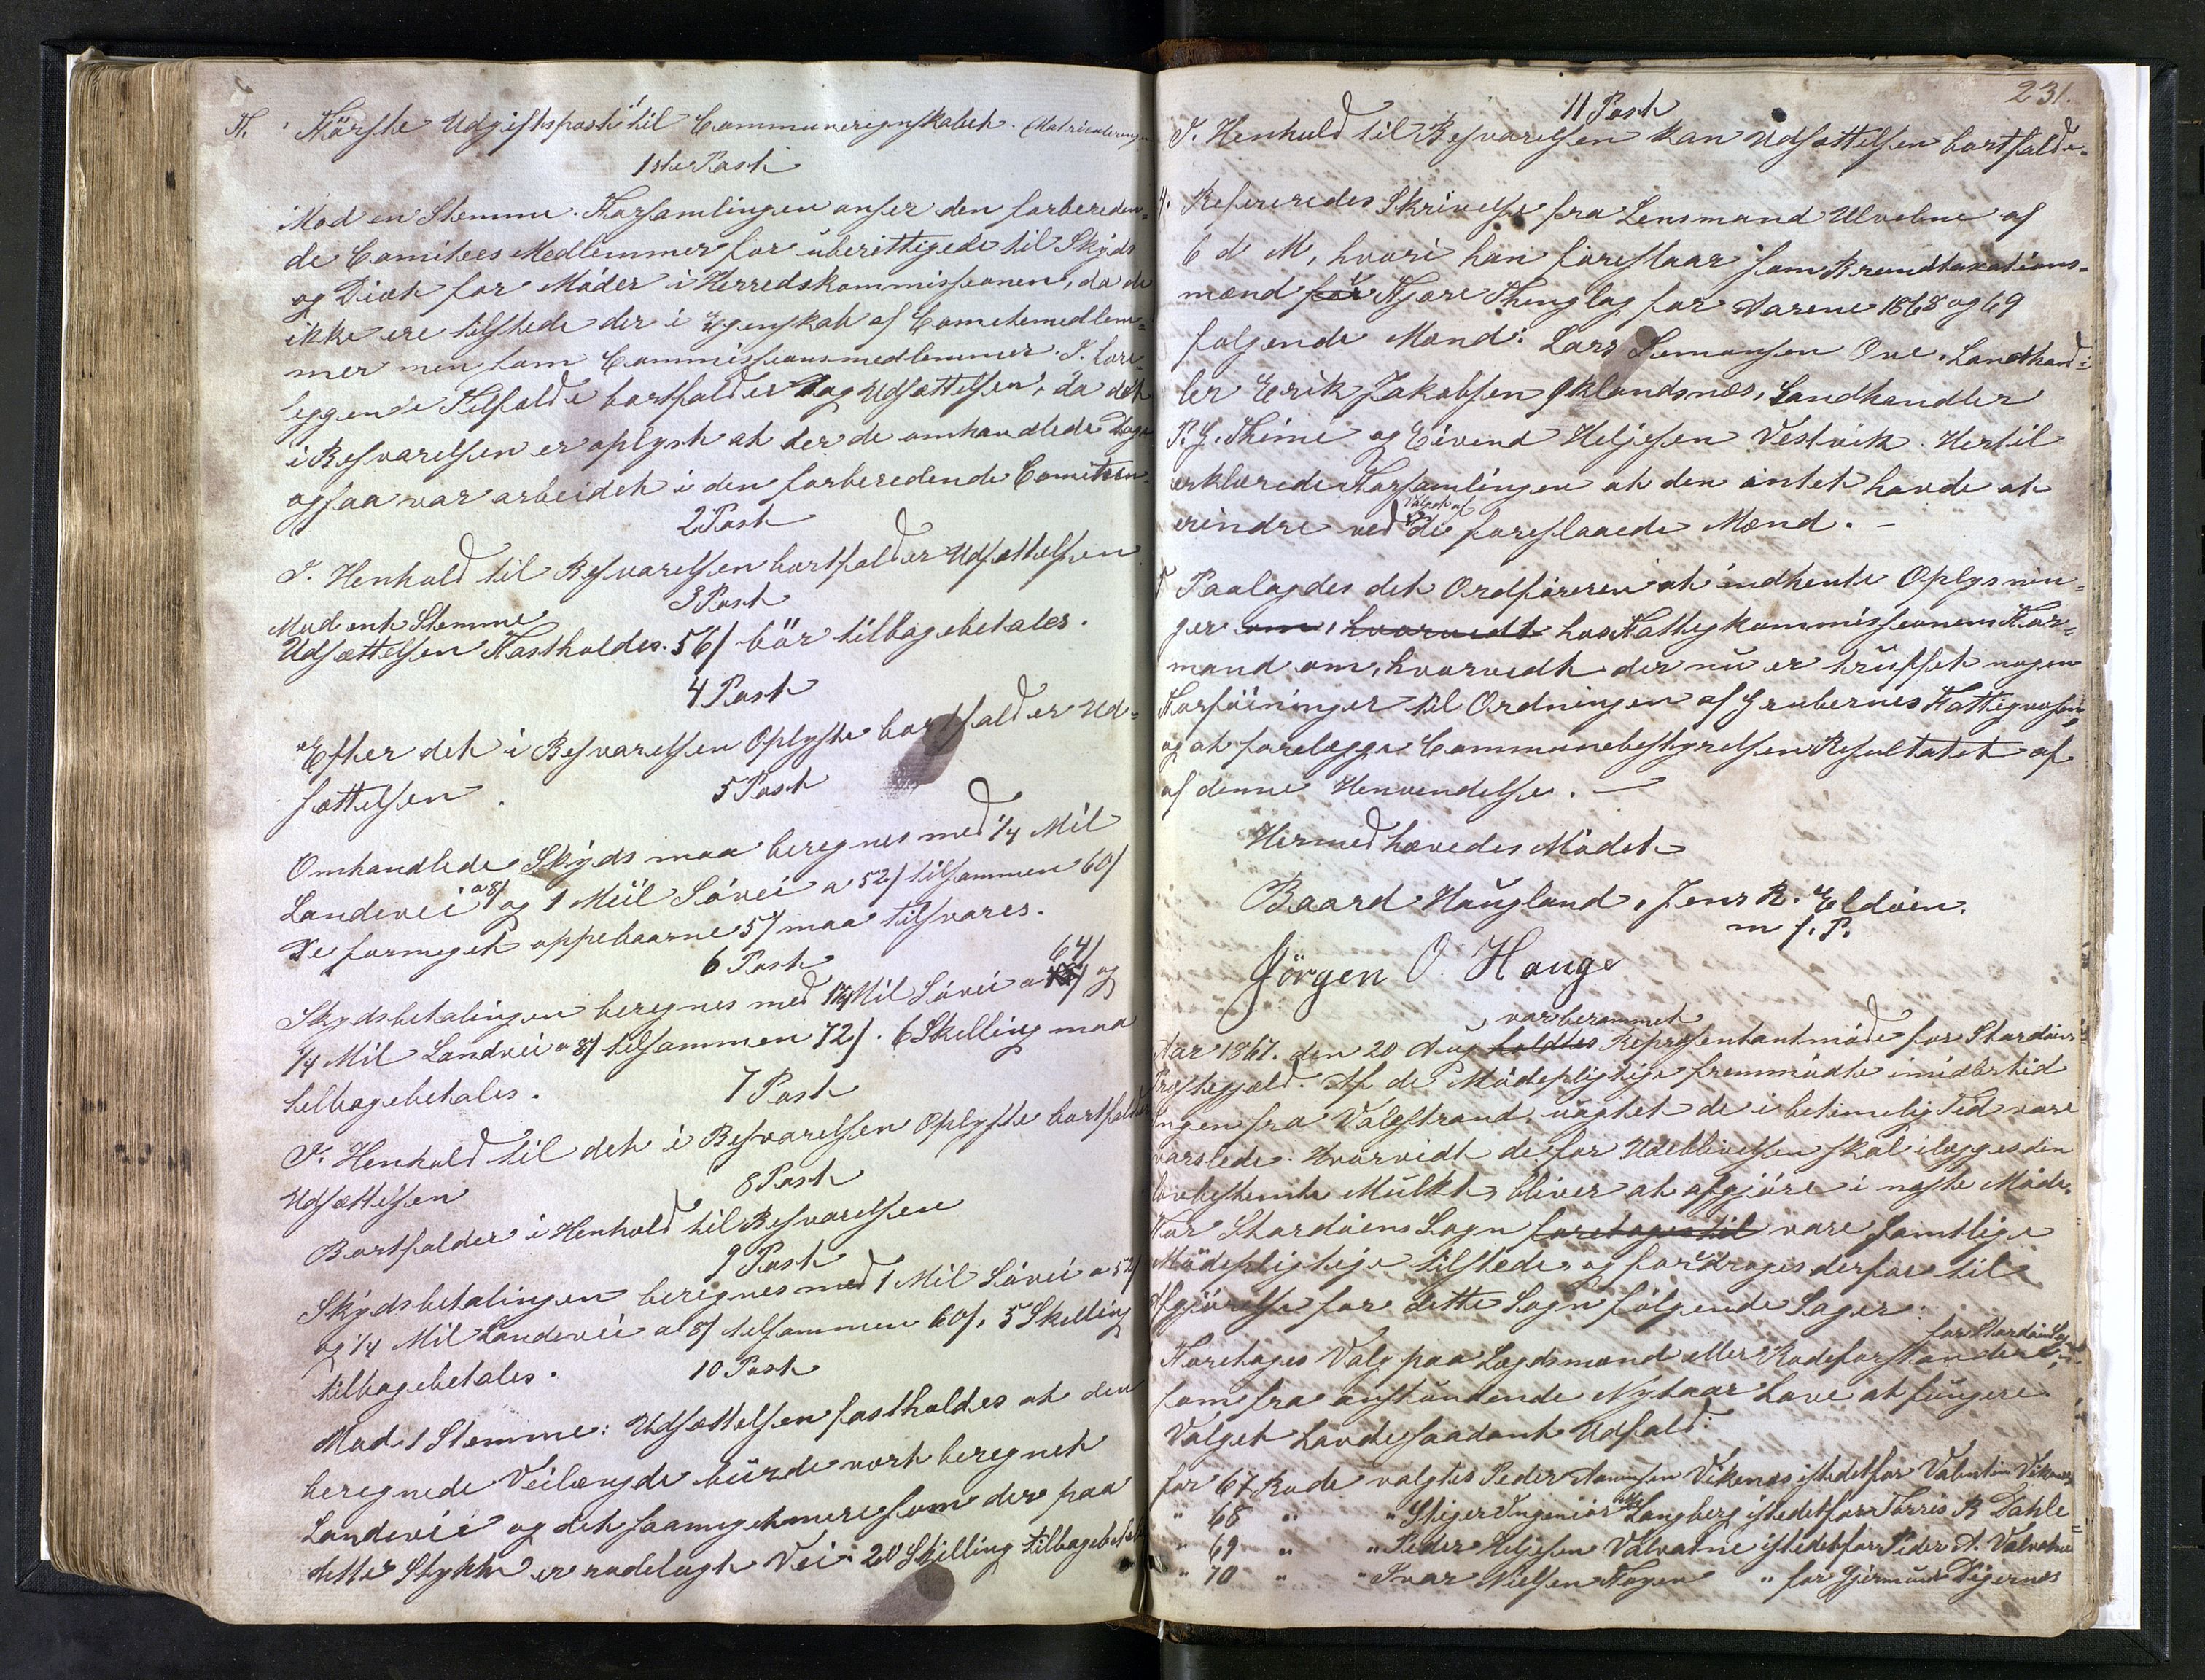 A. Første Udgiftspost til Communeregnskabet. (Matriculeringen
1ste Post
Mod en Stemme. Forsamlingen anser den forbereden-
de Comitees Medlemmer for uberettigede til Skyds
og Diæt for Møder i Herredskommissionen, da de
ikke ere tilstede der i Egenskab af Cometemedlem-
mer men som Commissionsmedlemmer. I fore-
liggende Tilfælde bortfalder dog Udsættelsen, da det
i Besvarelsen er oplyst at der de omhandlede Dage
ogsaa var arbeidet i den forberedende Comiteen.
2 Post
I Henhold til Besvarelsen bortfalder Udsættelsen
3 Post
Mod ent Stemme
Udsættelsen Fastholdes. 56/ bør tilbagebetales.
4 Post
Efter det i Besvarelsen Oplyste bortfalder Ud-
sættelsen.
5 Post
Omhandlede Skyds maa beregnes med 1/4 Mil
Landevei a 8/ og 1 Miil Søvei a 52/ tilsammen 60/
De formeget oppebaarne 5/ maa tilsvares.
6 Post
Skydsbetalingen beregnes med 1 1/4 Mil Søvei a 64/ og
1/4 Mil Landvei a 8/ tilsammen 72/. 6 Skilling maa
tilbagebetales.
7 Post
I Henhold til det i Besvarelsen Oplyste bortfalder
Udsættelsen
8 Post
Bortfalder i Henhold til Besvarelsen
9 Post
Skydsbetalingen beregnes med 1 Mil Søvei a 52/
og 1/4 Mil Landevei a 8/ tilsammen 60/. 5 Skilling
tilbagebetales.
10 Post
Mod 1 Stemme: Udsættelsen fastholdes at den
beregnede Veilængde burde vort beregnet
Landevei og det saameget mere som der paa
dette Stykke er rodelagt Vei. 20 Skilling tilbagebetales
231.
11 Post
I Henhold til Besvarelsen kan Udsættelsen bortfalde.
Refereredes Skrivelse fra Lensmand Ulvebne af
6 d M, hvori han foreslaar som Brandtaxations-
mænd for Fjære Thinglag for Aarene 1868 og 69
følgende Mænd: Lars Simonsen Ove, Landhand-
ler Erik Jakobsen Eklandsnæs, Landhandler
P. G. Thime og Eivend Heljesen Vestvik. Hertil
erklærede Forsamlingen at den intet havde at
erindre ved Valget af de foreslaaede Mænd. -
Paalagdes det Ordføreren at indhente Oplysnin-
ger om, hvorvidt hos Fattigkommissionens For-
mand om, hvorvidt der nu er truffet nogen
Forføininger til Ordningen af Grubernes Fattigvæsen,
og at forelægge Communebestyrelsen Resultatet af
af denne Henvendelse. -
Hermed hævedes Mødet
Baard Haugland, Jens R. Eldøen.
m f. P.
Jörgen O Hauge
var berammet
Aar 1867. den 20 Aug holdtes Repræsentantmøde for Stordøens
Præstegjæld Af de Mødepligtige fremmødte imidlertid
Ingen fra Valestrand, uagtet de i betimelig Tid vare
varslede. Hvorvidt de for Udeblivelsen skal ilægges den
lovbestemte Mulkt, bliver at afgjøre i næste Møde.
For Stordøens Sogn foretages til vare samtlige
Mødepligtige tilstede, og foretages derfor til
Afgjørelse for dette Sogn følgende Sager:
for Stordøens Sogn
Foretages Valg paa Lægdsmænd eller Rodeforstandere
som fra anstundende Nytaar have at fungere
Valget havde saadant Udfald:
for 67 Rode valgtes Peder Aamunsen Vikenæs istedetfor Valentin Vikenæs
" 68 " " Stiger Ingeniør Langberg istedetfor Tørris B Dahle
" 69 " " Peder Heljesen Valvatne istedetfor Peder A. Valvatne
" 70 " " Ivar Nielsen " for Gjermund Digernæs